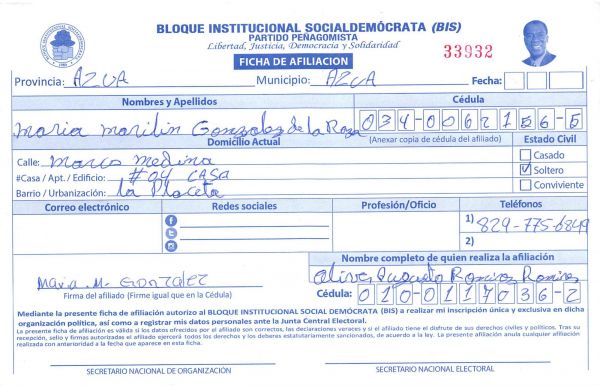 BLOQUE INSTITUCIONAL SOCIALDEMÓCRATA (BIS)
PARTIDO PEÑAGOMISTA
Libertad, Justicia, Democracia y Solidaridad
FICHA DE AFILIACION
33932
Provincia: AZUA Municipio: AZUA Fecha:
Nombres y Apellidos
Cédula
Maria Marilin Gonzalez de la Roza
034-0062156-5
Domicilio Actual
(Anexar copia de cédula del afiliado)
Estado Civil
Calle: Marco Medina
Casado
#Casa / Apt. / Edificio: #04 CASA
Soltero
Barrio / Urbanización: La Placeta
Conviviente
Correo electrónico
Redes sociales
Profesión/Oficio
Teléfonos
1) 829-775-6849
2)
Nombre completo de quien realiza la afiliación
Augusto Ramirez Ramirez
Maria M. GonzaleZ
Firma del afiliado (Firme igual que en la Cédula)
Cédula: 010-0117036-2
Mediante la presente ficha de afiliación autorizo al BLOQUE INSTITUCIONAL SOCIAL DEMÓCRATA (BIS) a realizar mi inscripción única y exclusiva en dicha
organización política, así como a registrar mis datos personales ante la Junta Central Electoral.
La presente ficha de afiliación es válida si los datos ofrecidos por el afiliado son correctos, las declaraciones veraces y si el afiliado tiene el disfrute de sus derechos civiles y políticos. Tras su
recepción, sello y firmas autorizadas el afiliado ejercerá todos los derechos y los deberes estatutariamente sancionados, de acuerdo a la ley. La presente afiliación anula cualquier afiliación
realizada con anterioridad a la fecha que aparece en esta ficha.
SECRETARIO NACIONAL DE ORGANIZACIÓN
SECRETARIO NACIONAL ELECTORAL